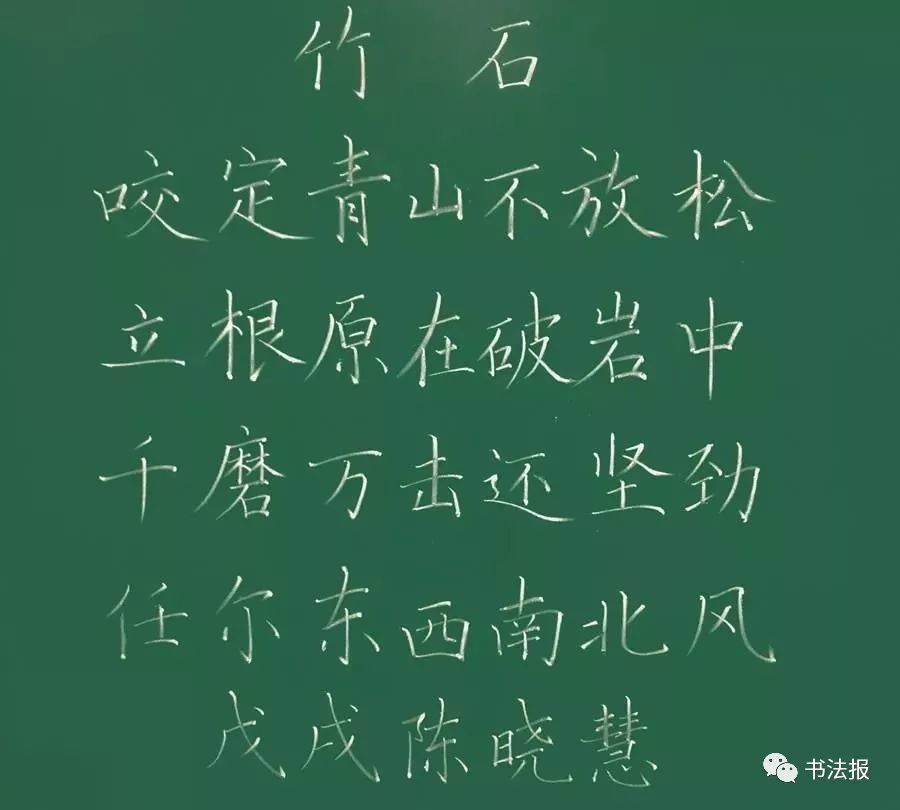 竹石
咬定青山不放松
立根原在破岩中
千磨万击还坚劲
任尔东西南北风
戊戌陈晓慧
书法报